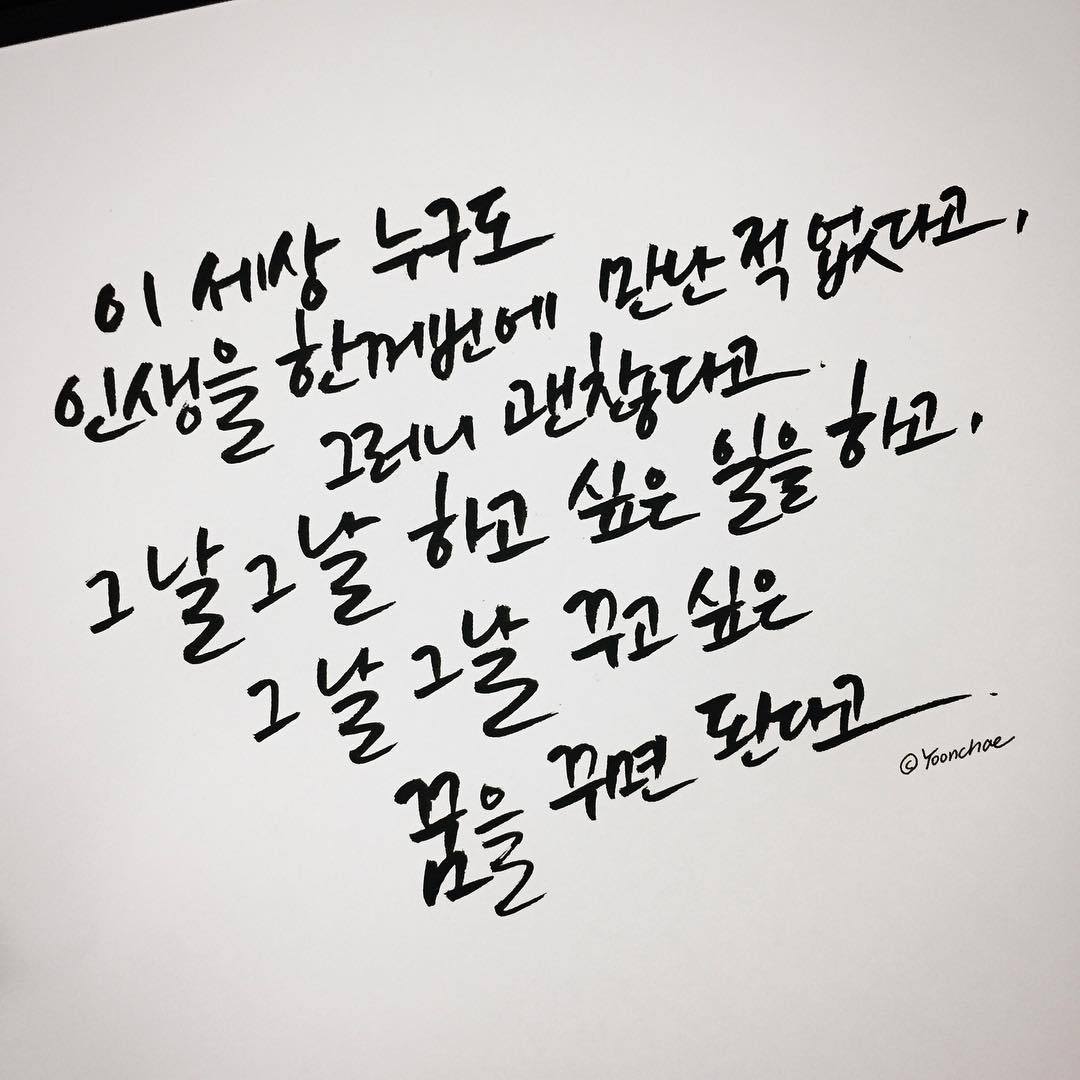 이 세상 누구도
인생을 한꺼번에 만난 적 없다고,
그러니 괜찮다고.
그날그날 하고 싶은 일을 하고,
그날그날 꾸고 싶은
꿈을 꾸면 된다고.
©Yoonchae